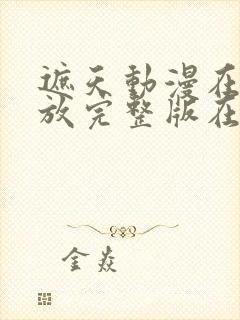 遮天動漫在
放完整版在
金焱